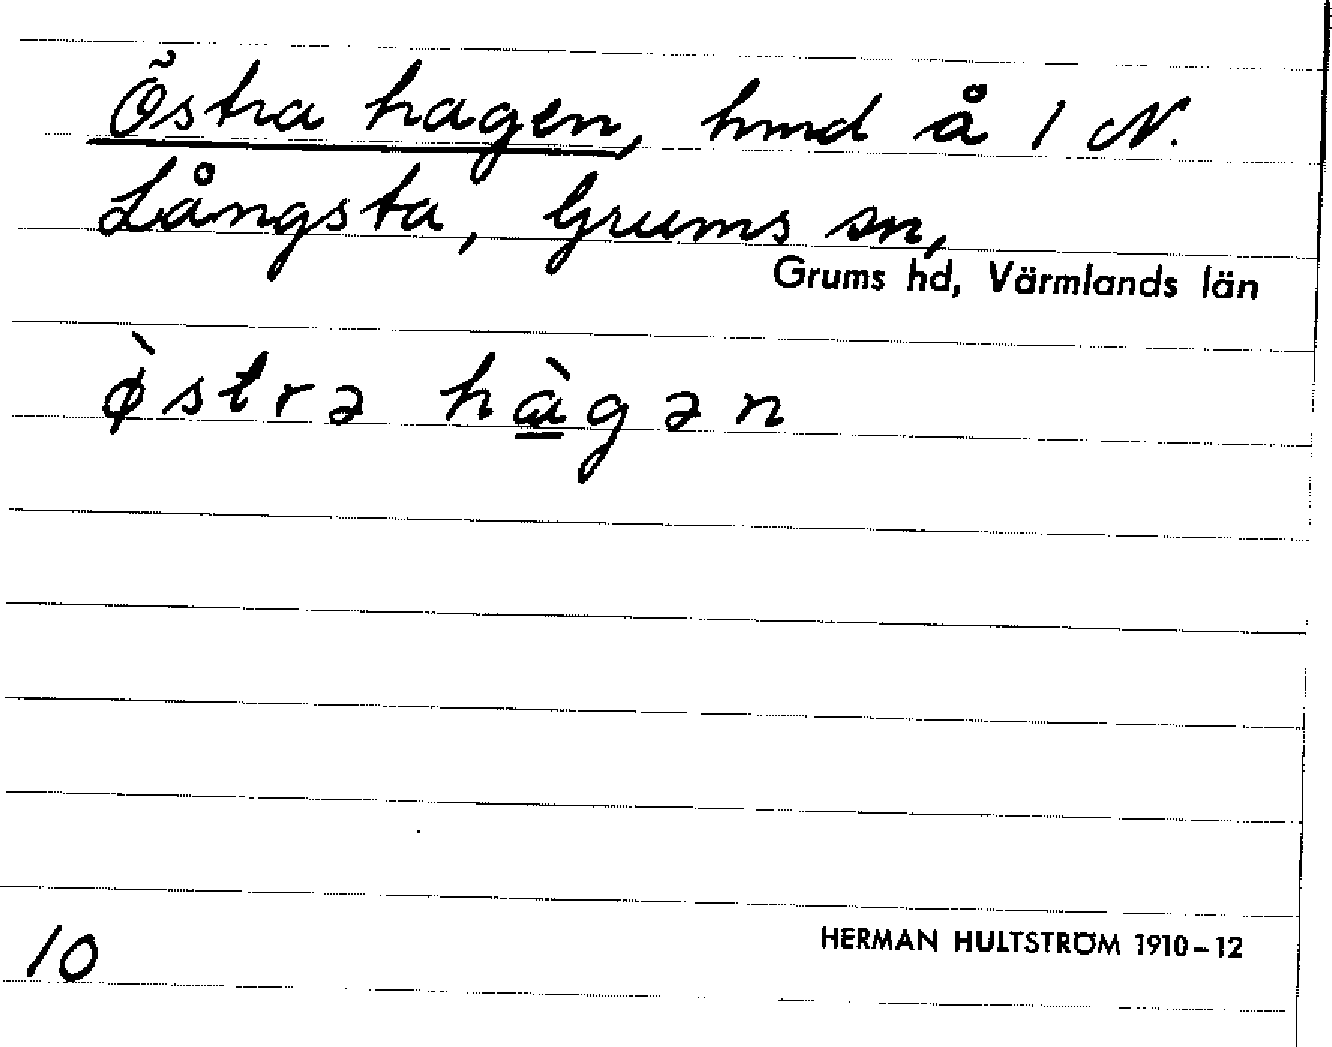 Östra hagen, hmd å 1 N.
Långsta, Grums sn,
Grums hd, Värmlands län
ø̀strə hàgən
10
HERMAN HULTSTRÖM 1910–12